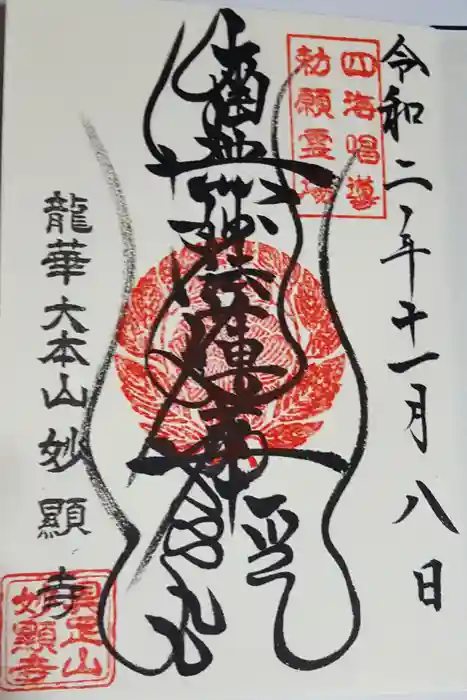 令和二年十一月八日
四海唱導
勅願霊場
南無妙法蓮華経
龍華大本山妙顯寺
具足山
妙顯寺